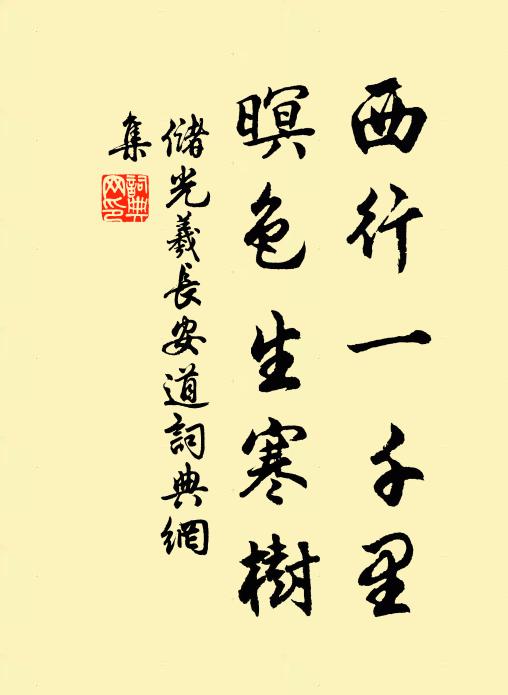 西行一千里
暝色生寒樹
儲光羲長安道詞典網
集
詞典
网印